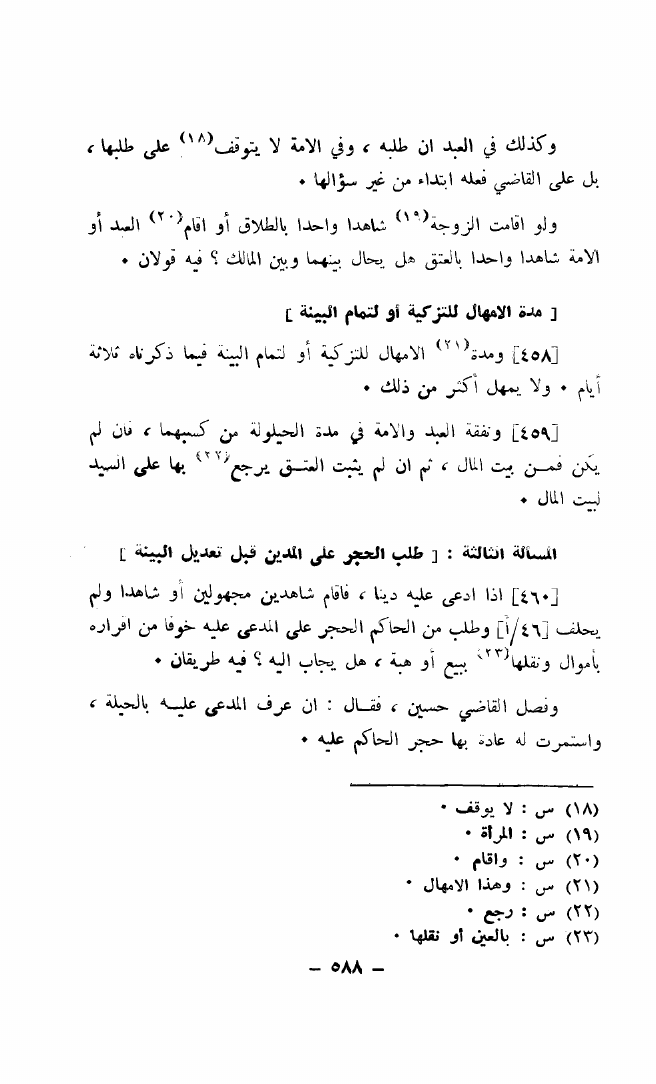 وكذلك في العبد ان طلبه ، وفي الامة لا يتوقف(١٨) على طلبها ،
بل على القاضي فعله ابتداء من غير سؤالها ٠
ولو اقامت الزوجة(١٩) شاهدا واحدا بالطلاق أو اقام(٢٠) العبد أو
الامة شاهدا واحدا بالعتق هل يحال بينهما وبين المالك ؟ فيه قولان ٠
[ مدة الامهال للتزكية أو لتمام البينة ]
[٤٥٨] ومدة(٢١) الامهال للتزكية أو لتمام البينة فيما ذكرناه ثلاثة
أيام ٠ ولا يمهل أكثر من ذلك ٠
[٤٥٩] ونفقة العبد والامة في مدة الحيلولة من كسبهما ، فان لم
يكن فمن بيت المال ، ثم ان لم يثبت العتق يرجع(٢٢) بها على السيد
لبيت المال ٠
المسألة الثالثة : [ طلب الحجر على المدين قبل تعديل البينة ]
[٤٦٠] اذا ادعى عليه دينا ، فاقام شاهدين مجهولين أو شاهدا ولم
يحلف [٤٦/أ] وطلب من الحاكم الحجر على المدعى عليه خوفا من اقراره
بأموال ونقلها(٢٣) ببيع أو هبة ، هل يجاب اليه ؟ فيه طريقان ٠
وفصل القاضي حسين ، فقال : ان عرف المدعى عليه بالحيلة ،
واستمرت له عادة بها حجر الحاكم عليه ٠
(١٨) س : لا يوقف ٠
(١٩) س : المرأة ٠
(٢٠) س : واقام ٠
(٢١) س : وهذا الامهال ٠
(٢٢) س : رجع ٠
(٢٣) س : بالعين أو نقلها ٠
– ٥٨٨ –